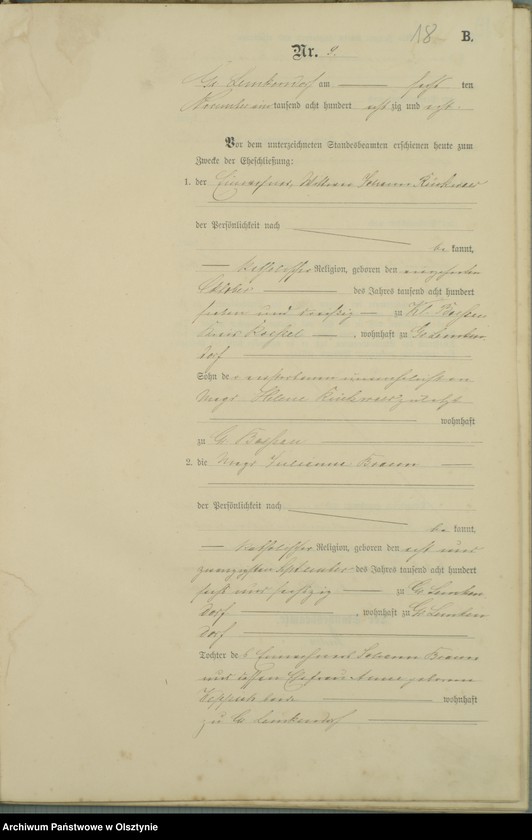 18 B.
Nr. 9.
Gr. Lemkendorf am ten
November eintausend acht hundert acht zig und acht.
Vor dem unterzeichneten Standesbeamten erschienen heute zum
Zwecke der Eheschließung:
1. der Einwohner, Wittwer Johann
der Persönlichkeit nach
be kannt,
katholischer Religion, geboren den
Oktober des Jahres tausend acht hundert
sieben und dreißig zu Kl. Bößau
Kreis Roessel, wohnhaft zu Gr Lemken
dorf
Sohn der verstorbenen unverehelichten
Magd Helene zuletzt
wohnhaft
zu Gr. Bößau
2. die Magd Julianna Braun
der Persönlichkeit nach
be kannt,
katholischer Religion, geboren den acht und
zwanzigsten September des Jahres tausend acht hundert
sechs und sechszig zu Gr Lemken
dorf, wohnhaft zu Gr Lemken
dorf
Tochter des Einwohners Johann Braun
und dessen Ehefrau Anna geborene
wohnhaft
zu Gr Lemkendorf
Archiwum Państwowe w Olsztynie